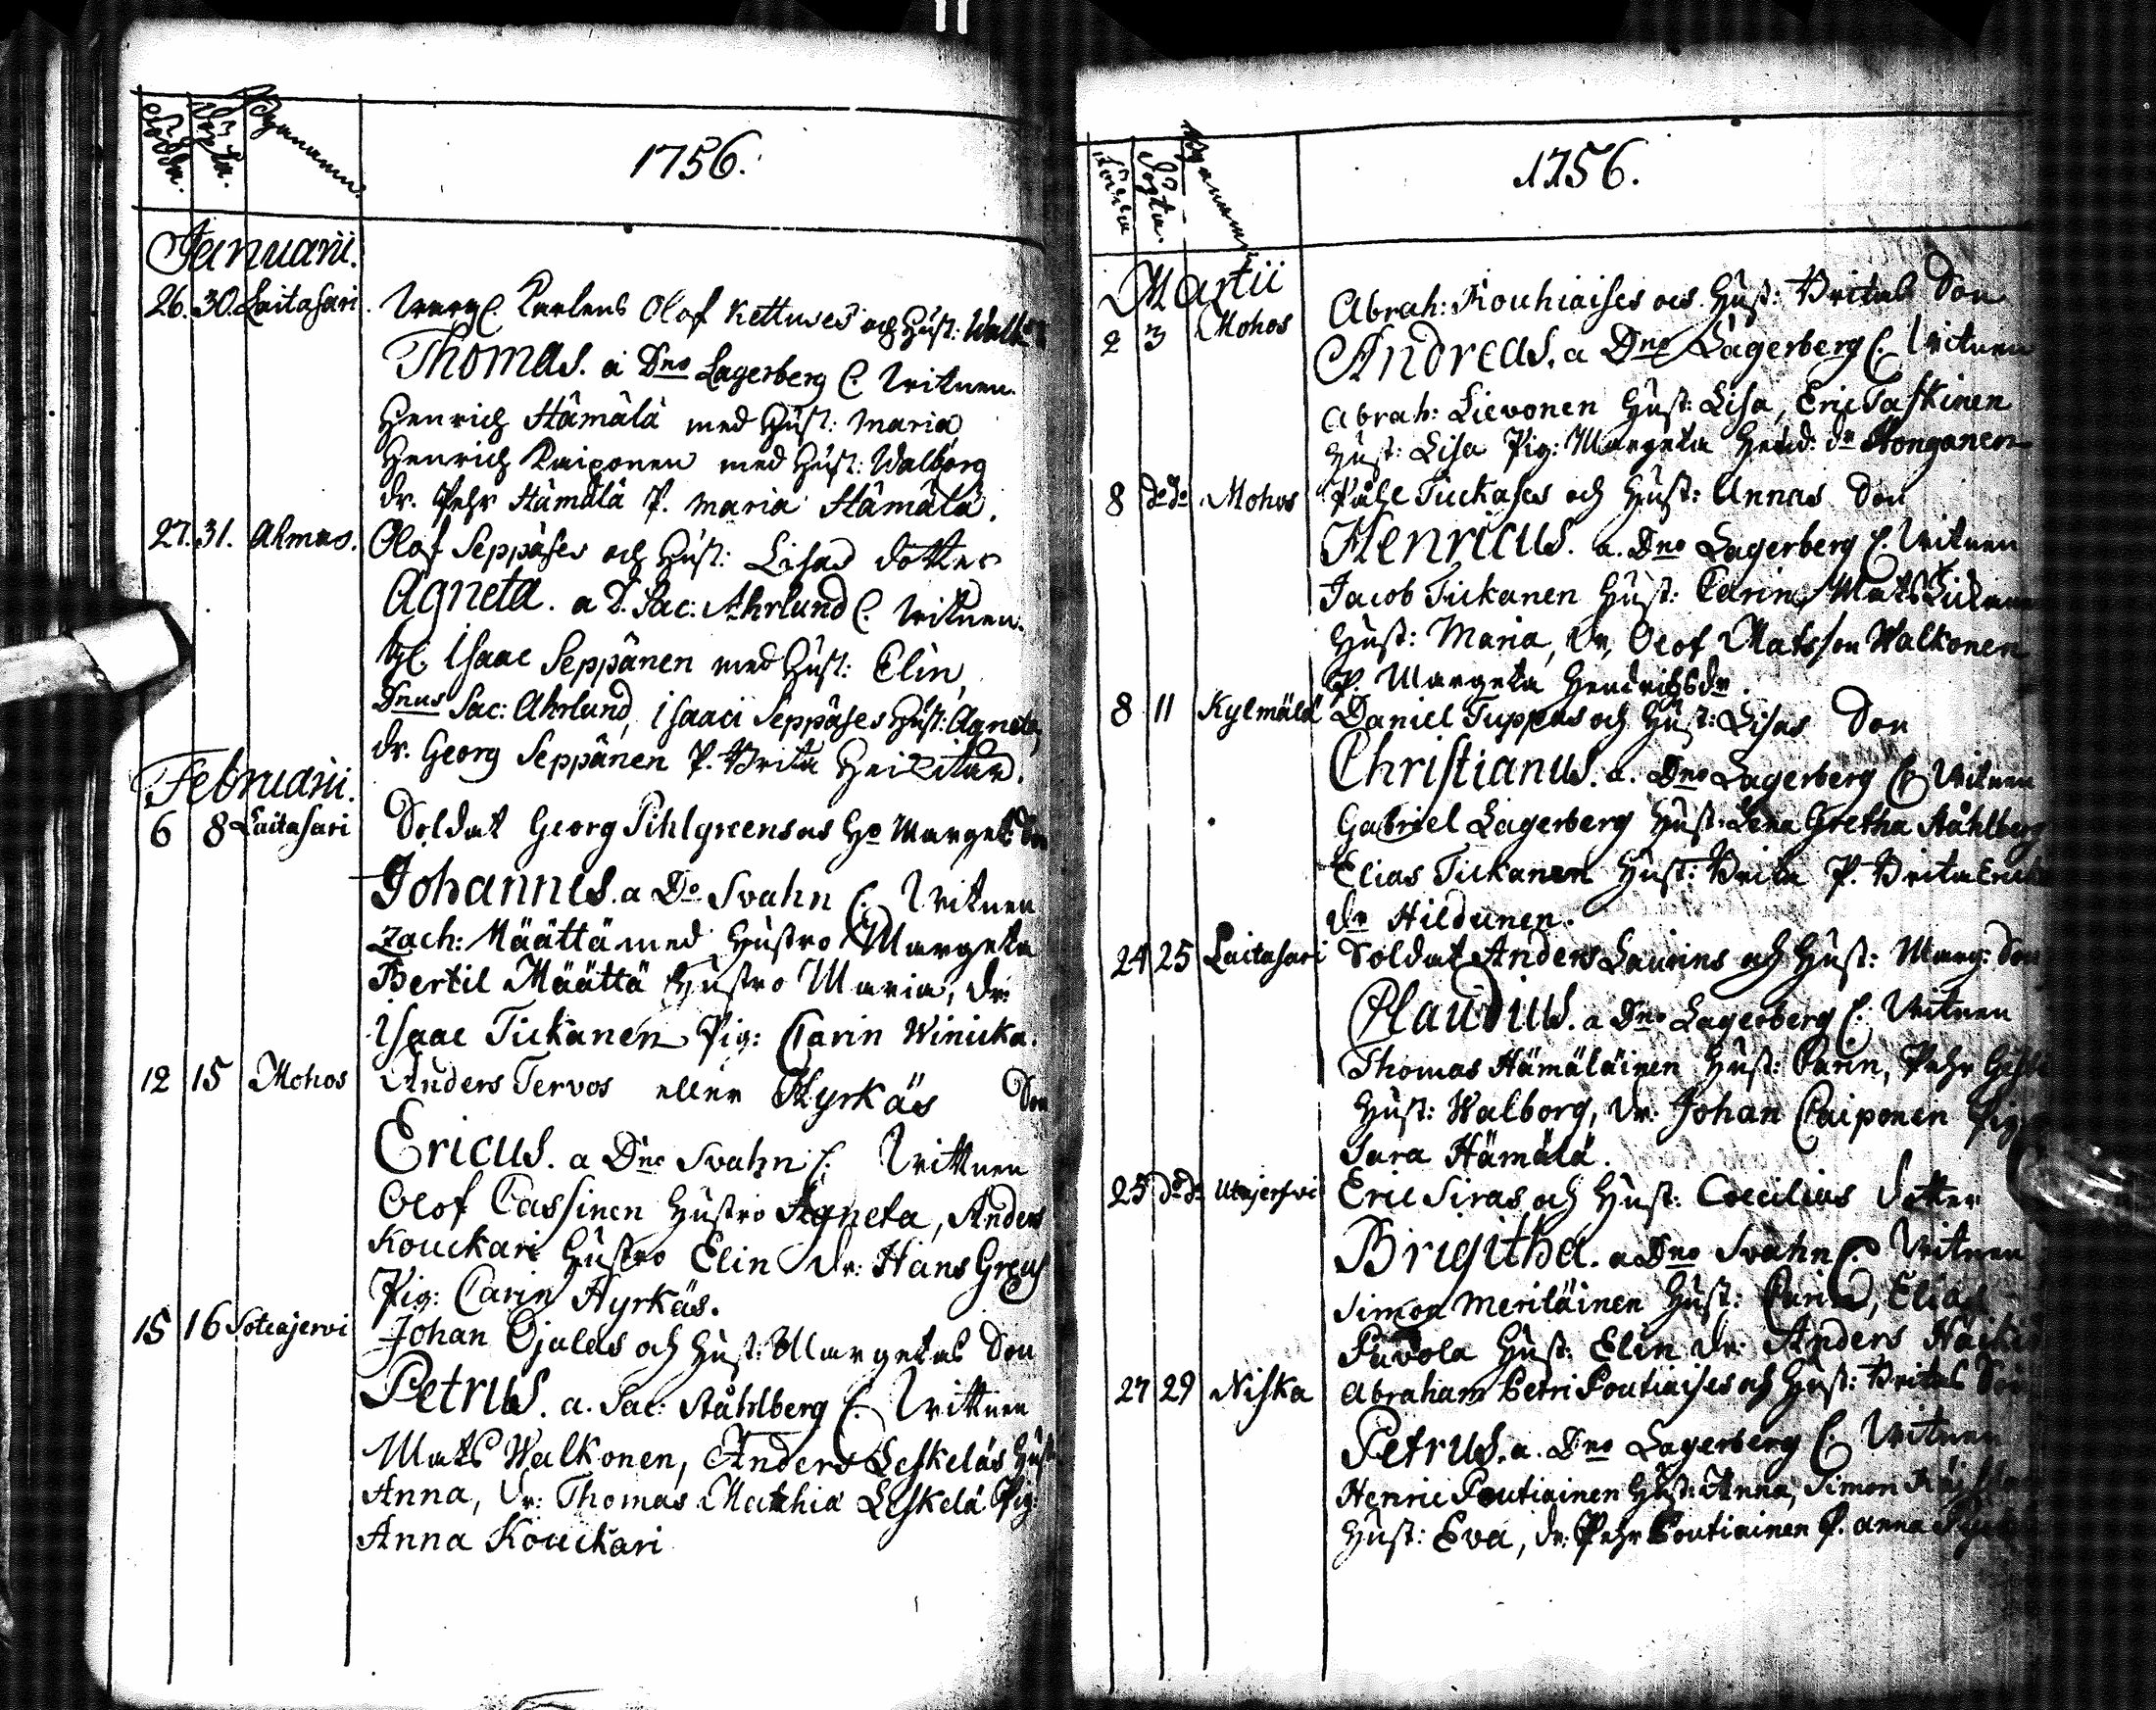 Födda. Döpta. Bynamn.
1756.
Januarii.
26. 30. Laitasari Olof Kettuses och Hust: Walb
Thomas. a Dno Lagerberg C. Vitnen.
Henrich Hämälä med Hust: Maria
Henrich Kaiponen med Hust: Walborg
dr. Pehr Hämälä P. Maria Hämälä.
27. 31. Ahmas. Olof Seppäses och Hust: Lisas dotter
Agneta. a D. Sac: Ahrlund C. Vitnen.
Isaac Seppänen med Hust: Elin,
Dnus Sac: Ahrlund, Isaaci Seppäses Hust: Agneta,
dr. Georg Seppänen P. Brita
Februarii.
6 8 Laitasari Soldat Georg Pihlgreens Ho Margets Son
Johannes. a Do Svahn C. Vitnen
Zach: Määttä med Hustro Margeta
Bertil Määttä Hustro Maria, dr:
Isaac Tickanen Pig: Carin Winicka.
12 15 Mohos Anders Tervos eller Hyrkäs Son
Ericus. a Dno Svahn C. Vittnen
Olof Cassinen Hustro Agneta, Anders
Kouckari Hustro Elin dr: Hans Greus
Pig: Carin Hyrkäs.
15 16 Sotcajervi Johan Ojalas och Hust: Margetas Son
Petrus. a. Sac: Ståhlberg C. Vittnen
Mats Walkonen, Anders Leskeläs Hust
Anna, dr: Thomas Mathia Leskelä Pig:
Anna Kouckari
Födda Döpta. Bynamn
1756.
Martii
2 3 Mohos Abrah: Kouhiaises och Hust: Britas Son
Andreas. a Dno Lagerberg C. Vitnen
Abrah: Lievonen Hust: Lisa, Eric Taskinen
Hust: Lisa Pig: Margeta Hend: dr Honganen
8 do do Mohos Påhl Tickases och Hust: Annas Son
Henricus. a. Dno Lagerberg C. Vitnen
Jacob Tickanen Hust: Carin, Mats
Hust: Maria, Dr, Olof Matsson Walkonen
P. Margeta Hendrichsdr.
8 11 Kylmälä Daniel Tuppas och Hust: Lisas Son
Christianus. a. Dno Lagerberg C. Vitnen
Gabriel Lagerberg Hust: Lena Gretha Ståhlberg
Elias Tickanen Hust: Brita P. Brita
dr Hildunen.
24 25 Laitasari Soldat Anders Laurins och Hust: Marg: Son
Claudius. a Dno Lagerberg C. Vitnen
Thomas Hämäläinen Hust: Carin, Pehr
Hust: Walborg, dr: Johan Caiponen Pig
Sara Hämälä.
25 do do Utajerfvi Eric Siras och Hust: Coecilias dotter
Brigitha. a Dno Svahn C. Vitnen
Simon Meriläinen Hust: Carin, Elias
Pavola Hust: Elin dr: Anders
27 29 Niska Abraham Petri Poutiaises och Hust: Britas Son
Petrus. a. Dno Lagerberg C. Vitnen
Henric Poutiainen Hust: Anna, Simon
Hust: Eva, dr: Pehr Poutiainen P. Anna